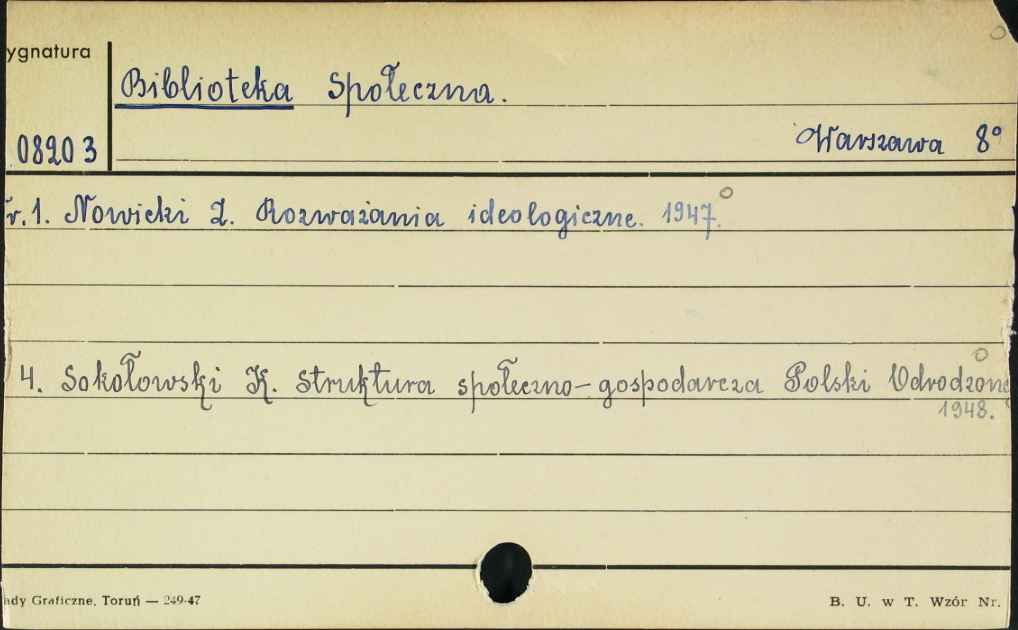 ygnatura
Biblioteka Społeczna.
Warszawa 8°
08203
r.1. Nowicki Z. Rozważania ideologiczne. 1947.
4. Sokołowski K. Struktura społeczno-gospodarcza Polski Odrodzone
1948.
ady Graficzne, Toruń — 249-47
B. U. w T. Wzór Nr.